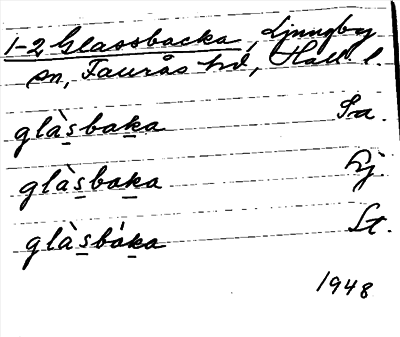 1-2 Glassbacka, Ljungby
sn, Faurås hd, Hall. l.
glàsbaka Sa.
glàsbaka Lj.
glàsbáka St.
1948